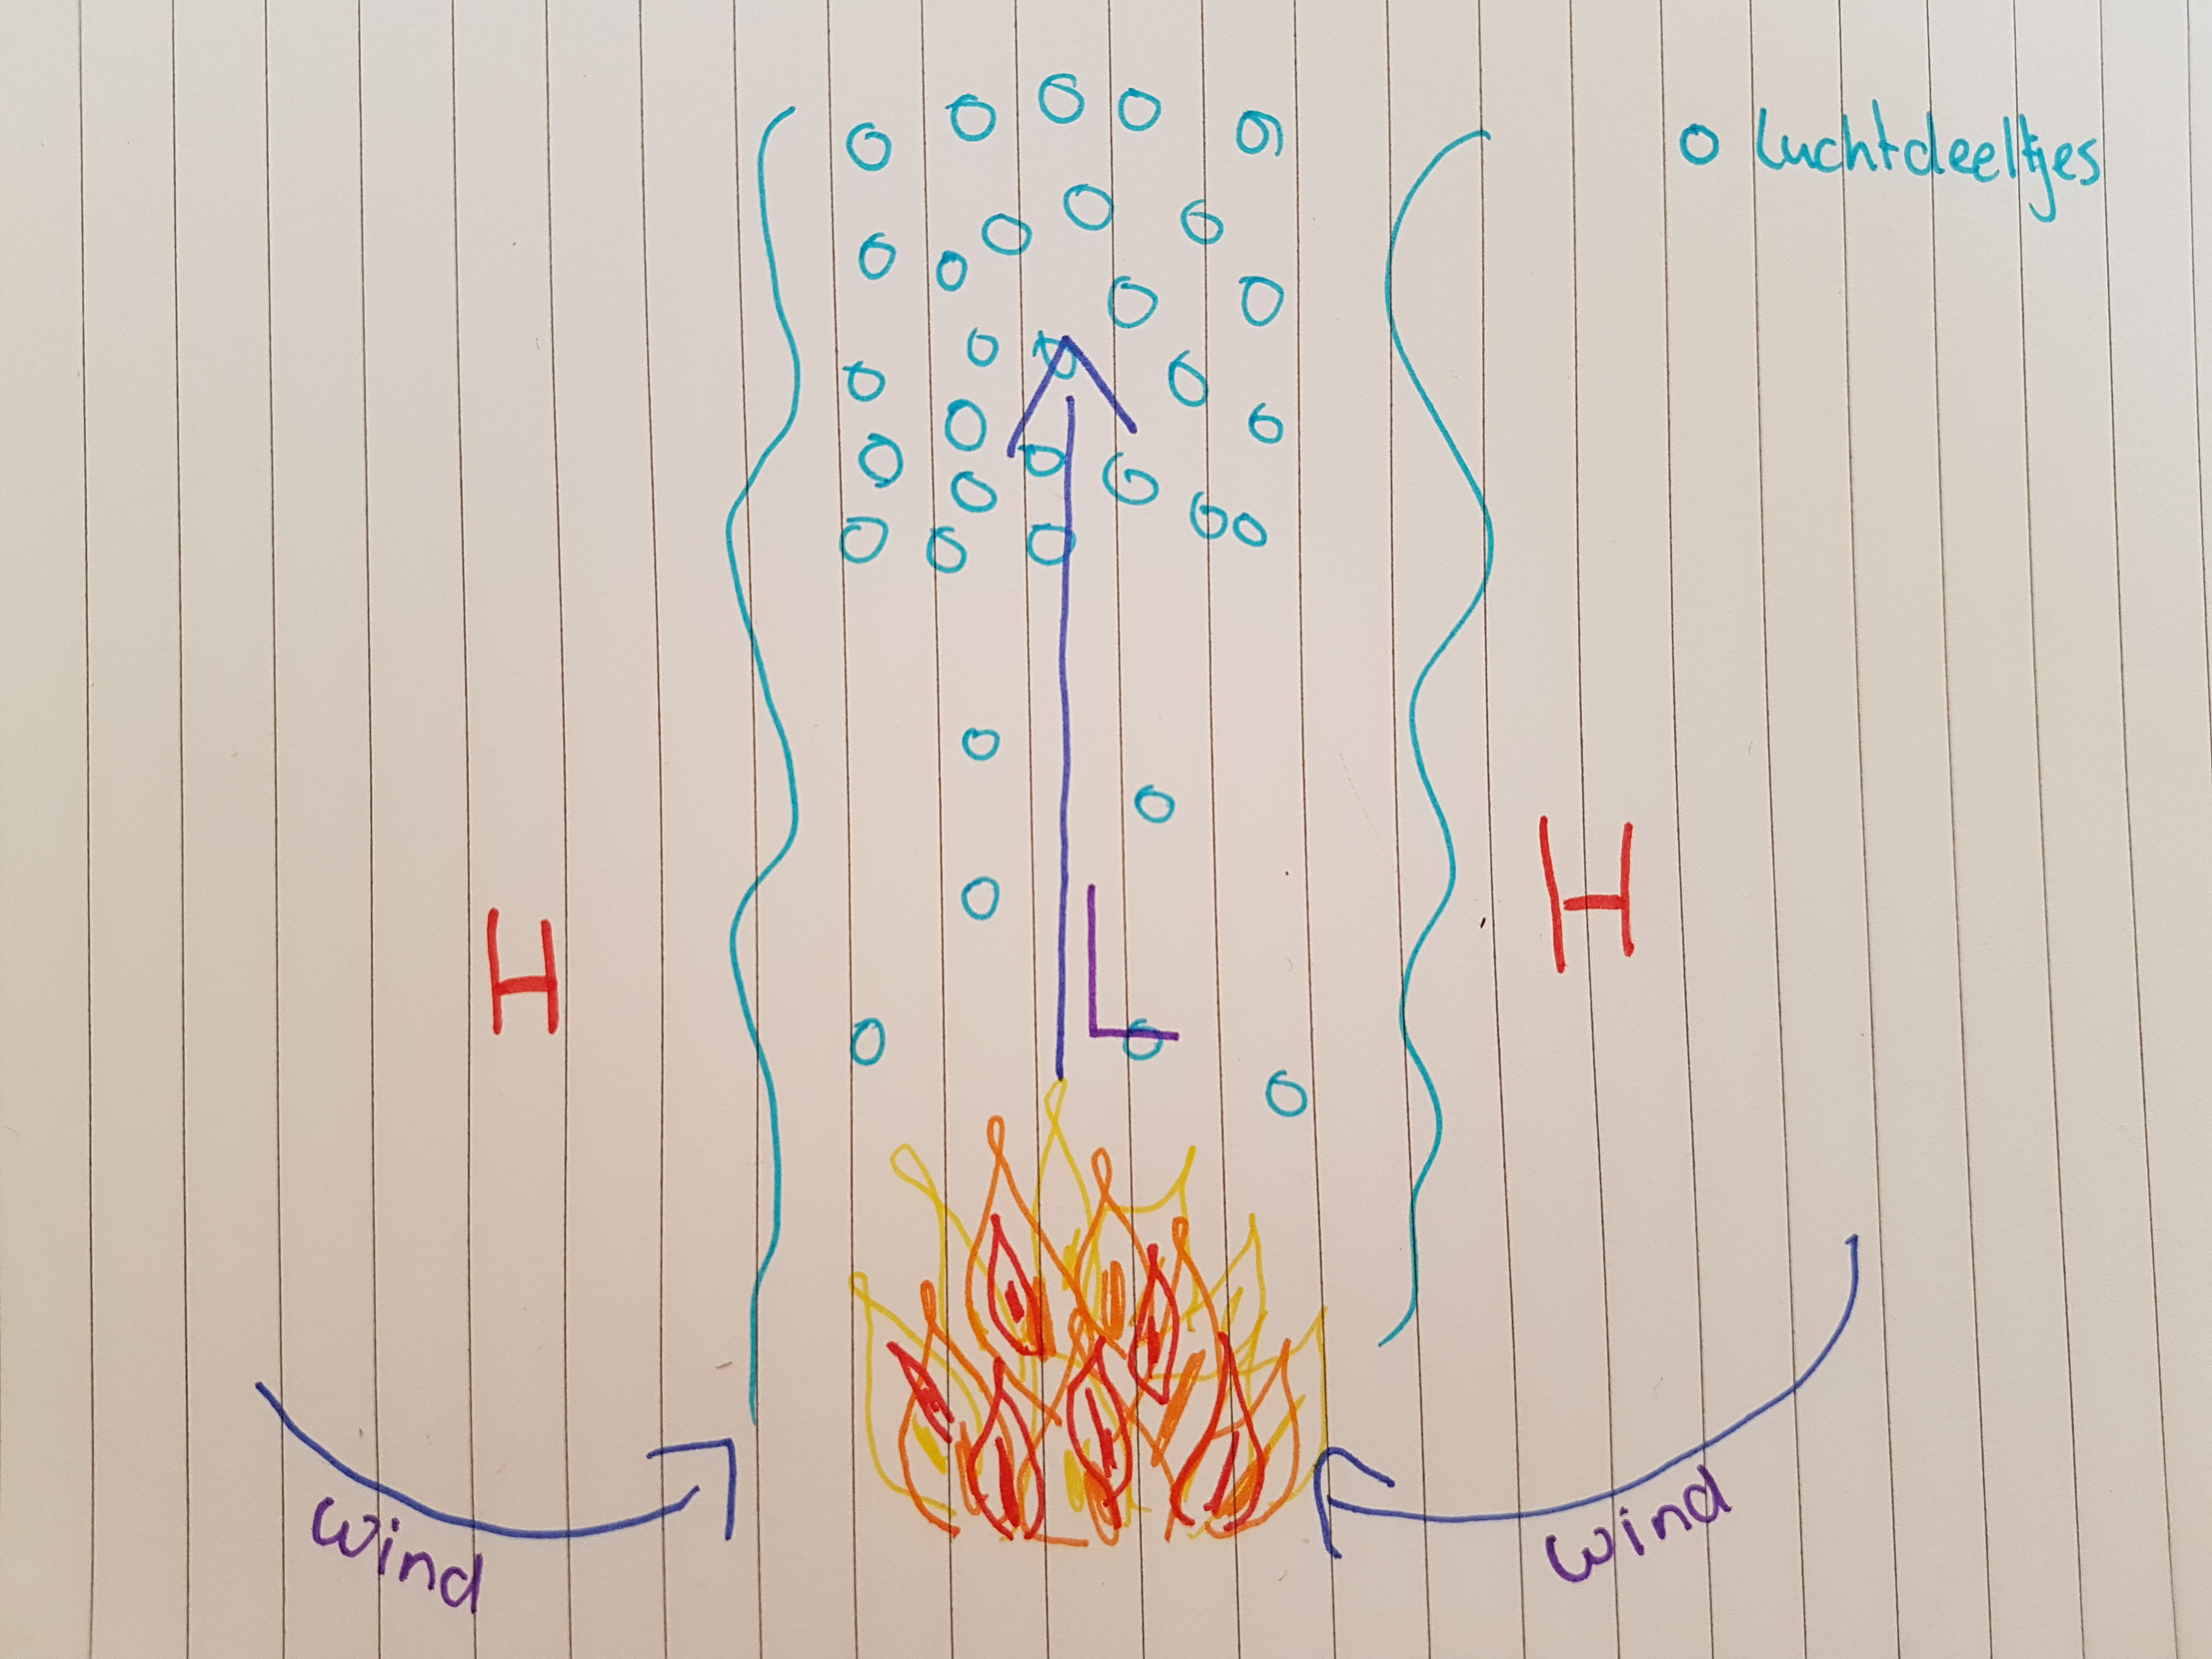 o luchtdeeltjes
H
L
H
wind
wind